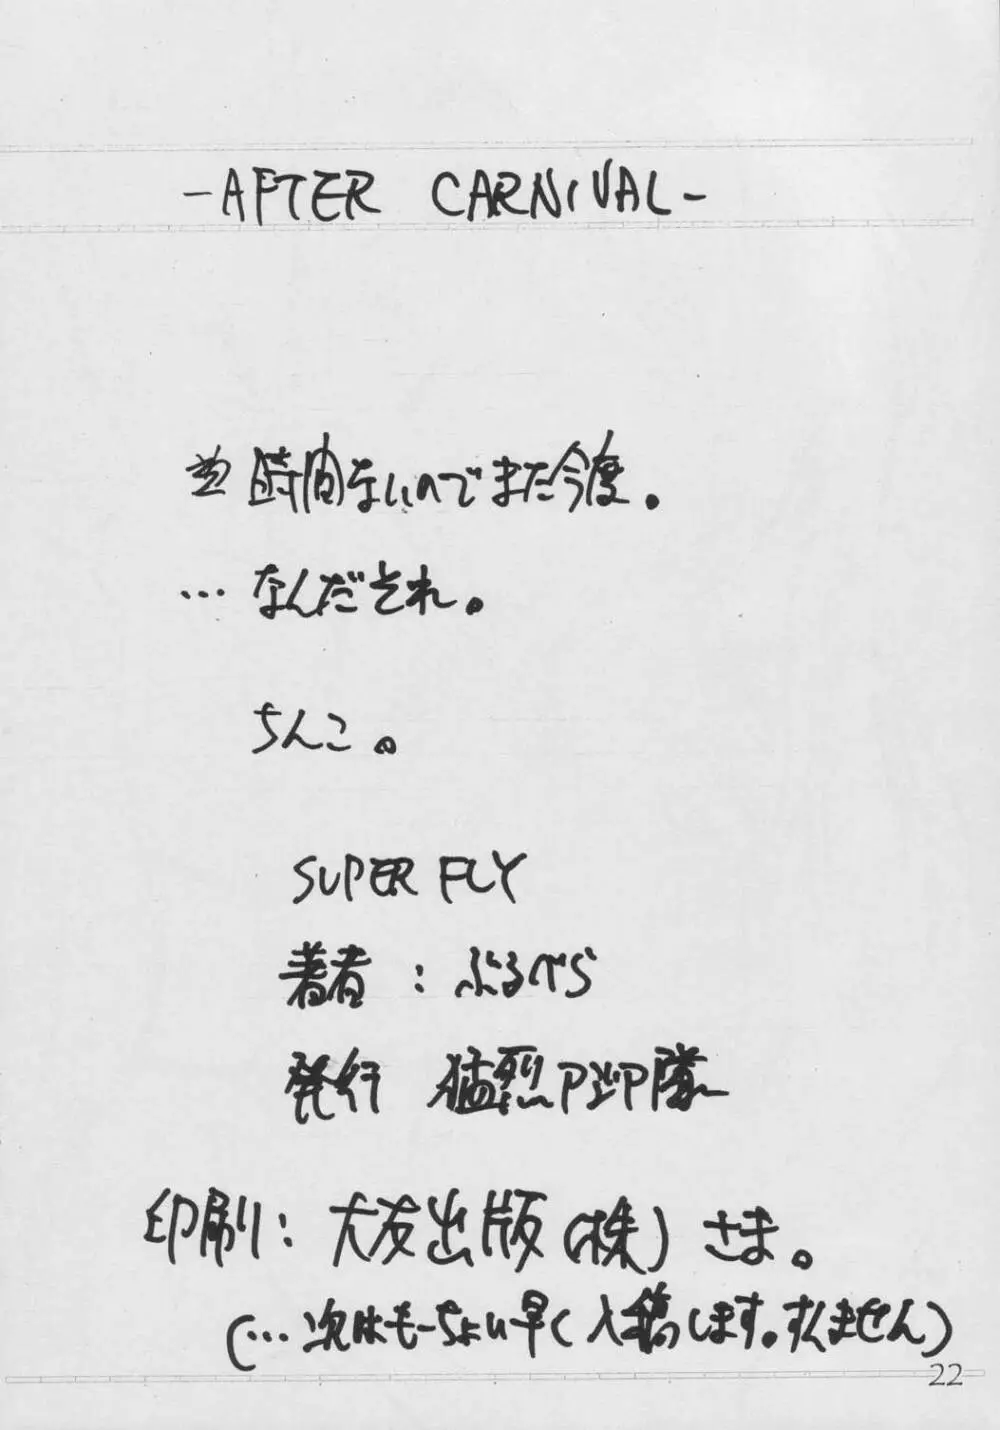 -AFTER CARNIVAL-
時間ないのでまた今度。
…なんだそれ。
ちんこ。
SUPER FLY
著者：ぶるべら
発行 猛烈PJP隊
印刷：大友出版（株）さま。
（…次はもーちょい早く入稿します。すんません）
22